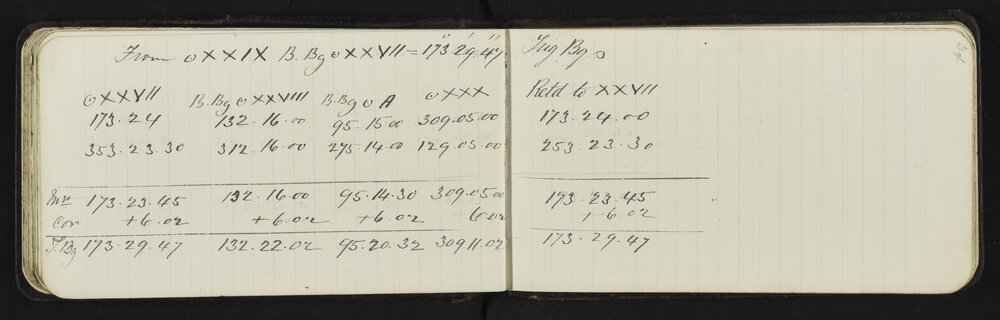 From ⊙XXIX B. Bg ⊙XXVII = 173° 29' 47"
⊙XXVII B. Bg ⊙XXVIII B. Bg ⊙ A ⊙XXX
173.24 132.16.00 95.15.00 309.05.00
353.23.30 312.16.00 275.14.00 129.05.00
Mn 173.23.45 132.16.00 95.14.30 309.05.00
Cor +6.02 +6.02 +6.02 6.02
T.Bg 173.29.47 132.22.02 95.20.32 309 11.02
Trig Bgs
Retd to XXVII
173.24.00
253.23.30
173.23.45
+6.02
173.29.47